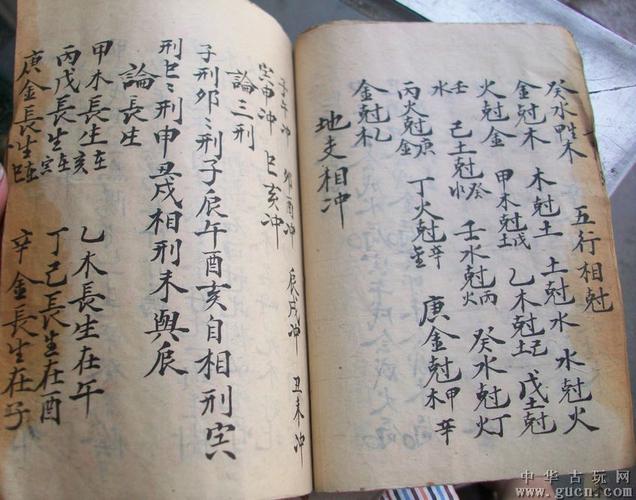 癸水生木
五行相尅
金尅木 木尅土 土尅水 水尅火
火尅金 甲木尅土戊 乙木尅土己 戊土尅
水壬 己土尅水癸 壬水尅火丙 癸水尅火丁
丙火尅金庚 丁火尅金辛 庚金尅木甲 辛
金尅乙
地支相冲
子午冲 卯酉冲 辰戌冲 丑未冲
寅申冲 巳亥冲
論三刑
子刑卯〻刑子辰午酉亥自相刑寅
刑巳〻刑申丑戌相刑未與辰
論長生
甲木長生在亥 乙木長生在午
丙戊長生在寅 丁己長生在酉
庚金長生在巳 辛金長生在子
中华古玩网
www.gucn.com